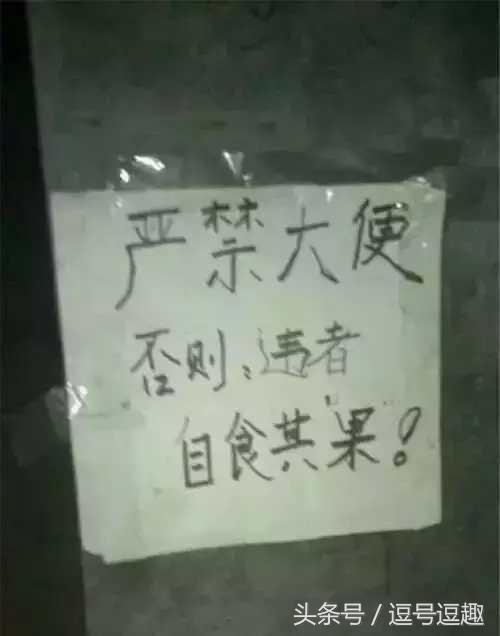 严禁大便
否则:违者
自食其"果"!
头条号 / 逗号逗趣